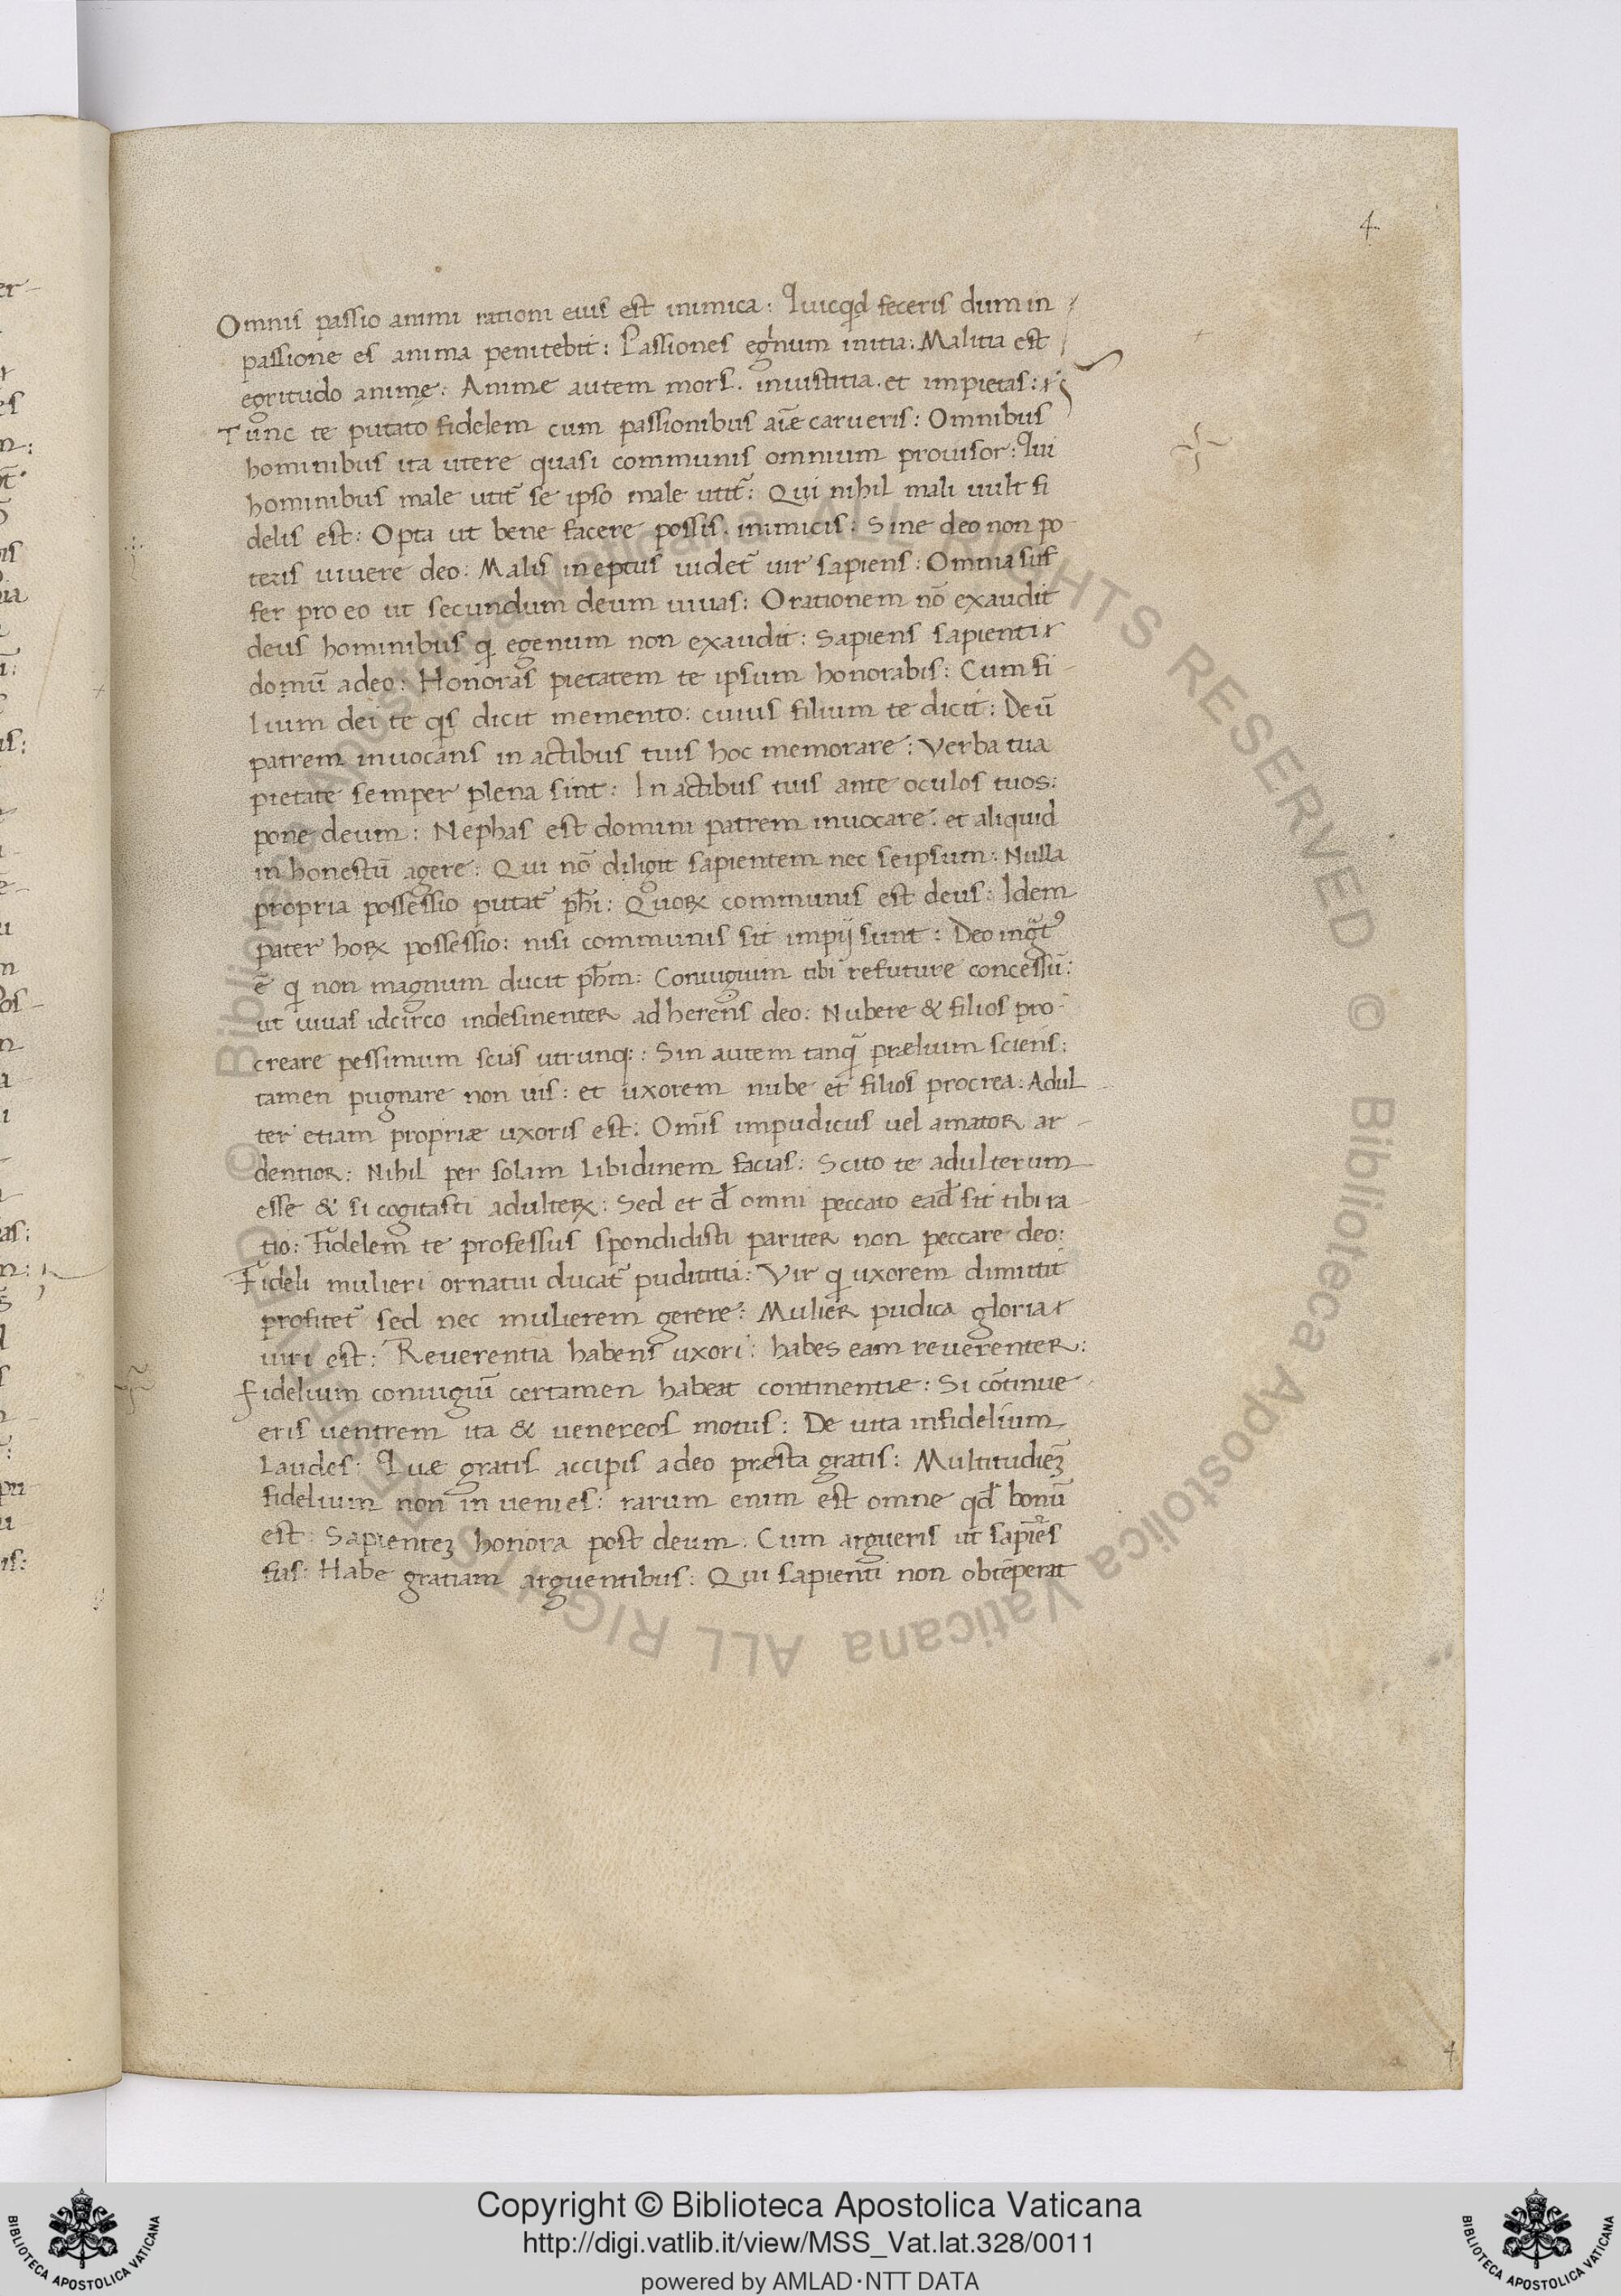 4
Omnis passio animi rationi eius est inimica: Quicqd feceris dum in
passione es anima penitebit: Passiones egrnum initia: Malitia est
egritudo animę: Anime autem mors. iniustitia. et impietas:
Tunc te putato fidelem cum passionibus aīæ carueris: Omnibus
hominibus ita utere quasi communis omnium prouisor: Qui
hominibus male utit̄ se ipso male utit̄: Qui nihil mali uult fi
delis est: Opta ut bene facere possis. inimicis: Sine deo non po
teris uiuere deo: Malis ineptus uidet̄ uir sapiens: Omnia suf
fer pro eo ut secundum deum uiuas: Orationem nō exaudit
deus hominibus q egenum non exaudit: Sapiens sapienti
domū adeo: Honoras pietatem te ipsum honorabis: Cum fi
lium dei te qs dicit memento: cuius filium te dicit: Deū
patrem inuocans in actibus tuis hoc memorare: Verba tua
pietate semper plena sint: In actibus tuis ante oculos tuos:
pone deum: Nephas est domini patrem inuocare: et aliquid
inhonestū agere: Qui nō diligit sapientem nec seipsum: Nulla
propria possessio putat̄ phi: Quoꝝ communis est deus: Idem
pater hoꝝ possessio: nisi communis sit impij sunt: Deo
ē q non magnum ducit phm: Coniugium tibi refuture concessū:
ut uiuas idcirco indesinenter adherens deo: Nubere & filios pro
creare pessimum scias utrunq: Sin autem tanq̄ prælium sciens:
tamen pugnare non uis: et uxorem nube et filios procrea: Adul
ter etiam propriæ uxoris est: Omīs impudicus uel amator ar
dentior: Nihil per solam libidinem facias: Scito te adulterum
esse & si cogitasti adulteꝝ: Sed et đ omni peccato eađ sit tibi ra
tio: Fidelem te professus spondidisti pariter non peccare deo:
Fideli mulieri ornatui ducat̄ pudititia: Vir q uxorem dimittit
profitet̄ sed nec mulierem gerere: Mulier pudica gloria
uiri est: Reuerentia habens uxori: habes eam reuerenter:
Fidelium coniugiū certamen habeat continentiæ: Si cōtinue
eris uentrem ita & venereos motus: De uita infidelium
Laudes: Quæ gratis accipis adeo præsta gratis: Multitudiēʒ
fidelium non in uenies: rarum enim est omne qđ bonū
est: Sapienteʒ honora post deum: Cum argueris ut sapiēs
fias: Habe gratiam arguentibus: Qui sapienti non obtēperat
4
Copyright © Biblioteca Apostolica Vaticana
http://digi.vatlib.it/view/MSS_Vat.lat.328/0011
powered by AMLAD·NTT DATA
BIBLIOTECA APOSTOLICA VATICANA
BIBLIOTECA APOSTOLICA VATICANA
© Biblioteca Apostolica Vaticana ALL RIGHTS RESERVED © Biblioteca Apostolica Vaticana ALL RIGHTS RESERVED